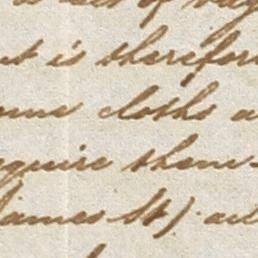 a set of rag
it is therefor
ome cloths a
equire them-
James St) . act